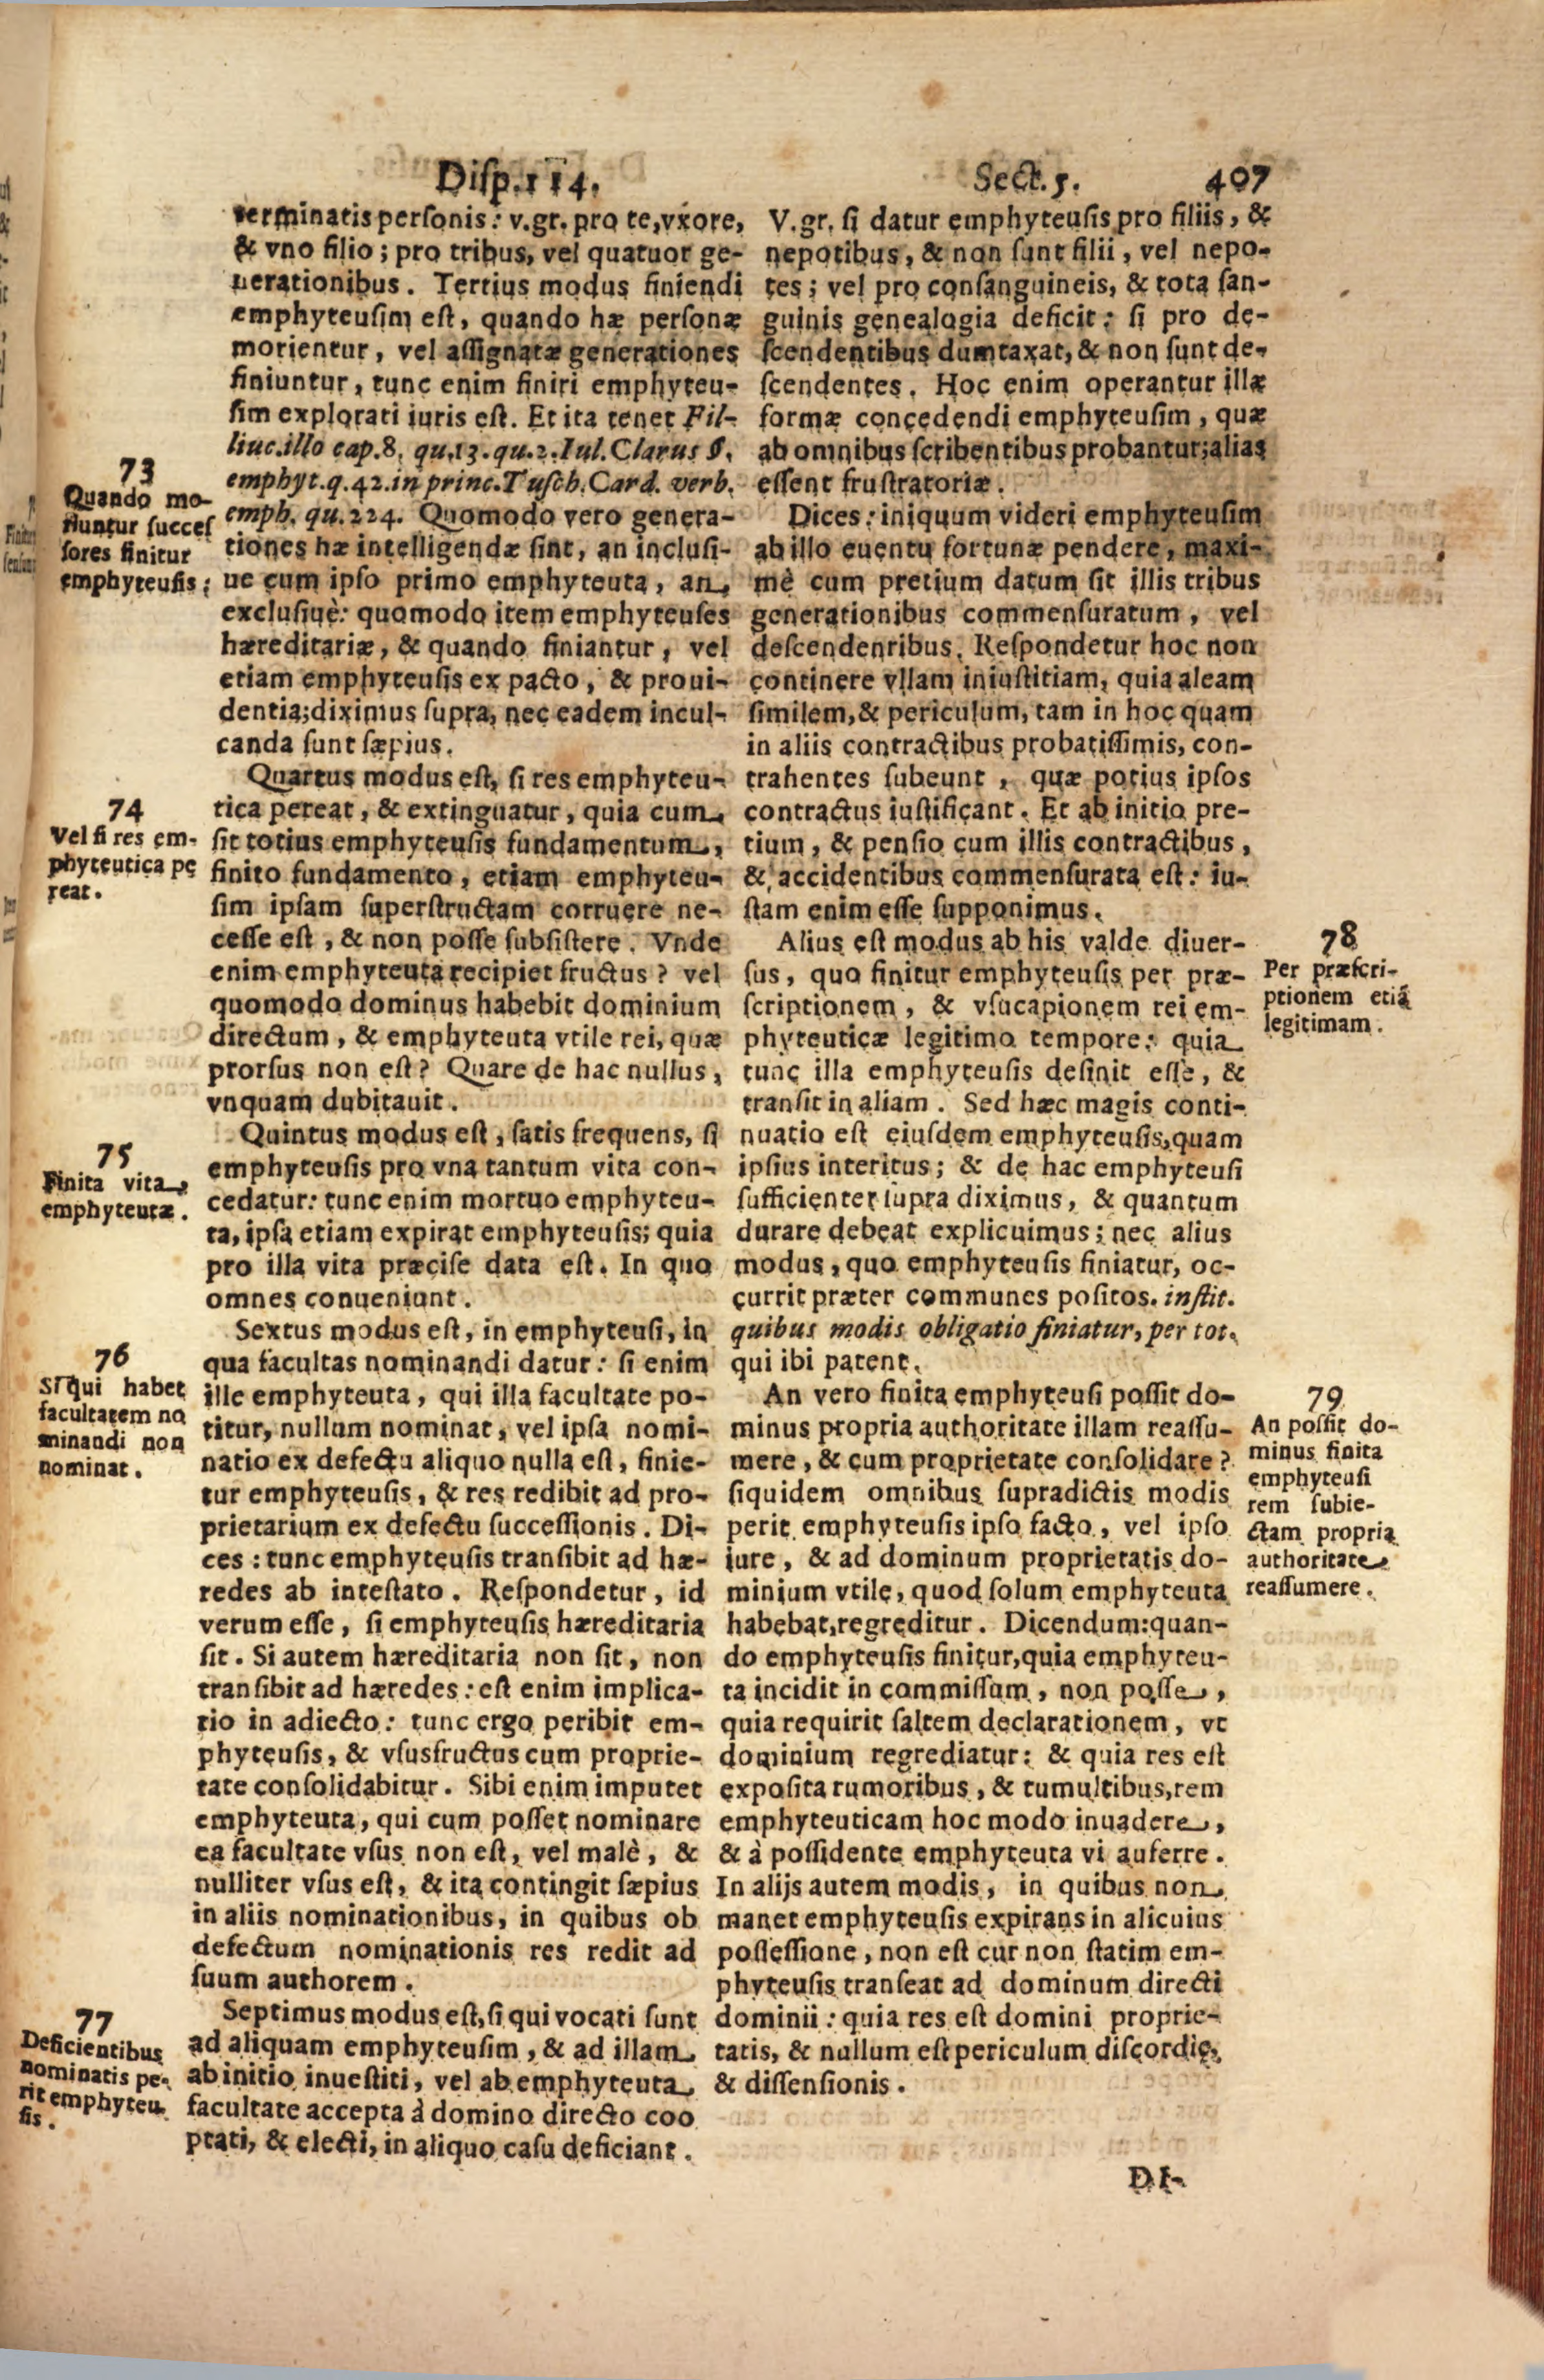 Disp.114. Sect.5. 407
terminatis personis: v.gr. pro te, vxore,
& vno filio; pro tribus, vel quatuor ge-
nerationibus. Tertius modus finiendi
emphyteusim est, quando hæ personæ
morientur, vel assignatæ generationes
finiuntur, tunc enim finiri emphyteu-
sim explorati iuris est. Et ita tenet Fil-
liuc.illo cap.8. qu.13.qu.2.Iul.Clarus §.
emphyt.q.42.in princ.Tusch.Card. verb.
emph. qu.224. Quomodo vero genera-
tiones hæ intelligendæ sint, an inclusi-
ue cum ipso primo emphyteuta, an
exclusiuè: quomodo item emphyteuses
hæreditariæ, & quando finiantur, vel
etiam emphyteusis ex pacto, & proui-
dentia; diximus supra, nec eadem incul-
canda sunt sæpius.
73
Quando mo-
riuntur succes
sores finitur
emphyteusis:
Quartus modus est, si res emphyteu-
tica pereat, & extinguatur, quia cum
sit totius emphyteusis fundamentum,
finito fundamento, etiam emphyteu-
sim ipsam superstructam corruere ne-
cesse est, & non posse subsistere. Vnde
enim emphyteuta recipiet fructus? vel
quomodo dominus habebit dominium
directum, & emphyteuta vtile rei, quæ
prorsus non est? Quare de hac nullus,
vnquam dubitauit.
74
Vel si res em-
phyteutica pe
reat.
Quintus modus est, satis frequens, si
emphyteusis pro vna tantum vita con-
cedatur: tunc enim mortuo emphyteu-
ta, ipsa etiam expirat emphyteusis; quia
pro illa vita præcise data est. In quo
omnes conueniunt.
75
Finita vita,
emphyteutæ.
Sextus modus est, in emphyteusi, in
qua facultas nominandi datur: si enim
ille emphyteuta, qui illa facultate po-
titur, nullum nominat, vel ipsa nomi-
natio ex defectu aliquo nulla est, finie-
tur emphyteusis, & res redibit ad pro-
prietarium ex defectu successionis. Di-
ces: tunc emphyteusis transibit ad hæ-
redes ab intestato. Respondetur, id
verum esse, si emphyteusis hæreditaria
sit. Si autem hæreditaria non sit, non
transibit ad hæredes: est enim implica-
tio in adiecto: tunc ergo peribit em-
phyteusis, & vsusfructus cum proprie-
tate consolidabitur. Sibi enim imputet
emphyteuta, qui cum posset nominare
ea facultate vsus non est, vel malè, &
nulliter vsus est, & ita contingit sæpius
in aliis nominationibus, in quibus ob
defectum nominationis res redit ad
suum authorem.
76
Si qui habet
facultatem no
minandi non
nominat.
Septimus modus est, si qui vocati sunt
ad aliquam emphyteusim, & ad illam
ab initio inuestiti, vel ab emphyteuta
facultate accepta à domino directo coo
ptati, & electi, in aliquo casu deficiant.
77
Deficientibus
nominatis pe-
rit emphyteu
sis.
V.gr. si datur emphyteusis pro filiis, &
nepotibus, & non sunt filii, vel nepo-
tes; vel pro consanguineis, & tota san-
guinis genealogia deficit: si pro de-
scendentibus dumtaxat, & non sunt de-
scendentes. Hoc enim operantur illæ
formæ concedendi emphyteusim, quæ
ab omnibus scribentibus probantur; alias
essent frustratoriæ.
Dices: iniquum videri emphyteusim
ab illo euentu fortunæ pendere, maxi-
mè cum pretium datum sit illis tribus
generationibus commensuratum, vel
descendentibus. Respondetur hoc non
continere vllam iniustitiam, quia aleam
similem, & periculum, tam in hoc quam
in aliis contractibus probatissimis, con-
trahentes subeunt, quæ potius ipsos
contractus iustificant. Et ab initio pre-
tium, & pensio cum illis contractibus,
& accidentibus commensurata est: iu-
stam enim esse supponimus.
Alius est modus ab his valde diuer-
sus, quo finitur emphyteusis per præ-
scriptionem, & vsucapionem rei em-
phyteuticæ legitimo tempore: quia
tunc illa emphyteusis desinit esse, &
transit in aliam. Sed hæc magis conti-
nuatio est eiusdem emphyteusis, quam
ipsius interitus; & de hac emphyteusi
sufficienter supra diximus, & quantum
durare debeat explicuimus; nec alius
modus, quo emphyteusis finiatur, oc-
currit præter communes positos. instit.
quibus modis obligatio finiatur, per tot.
qui ibi patent.
78
Per præscri-
ptionem etiã
legitimam.
An vero finita emphyteusi possit do-
minus propria authoritate illam reassu-
mere, & cum proprietate consolidare?
siquidem omnibus supradictis modis
perit emphyteusis ipso facto, vel ipso
iure, & ad dominum proprietatis do-
minium vtile, quod solum emphyteuta
habebat, regreditur. Dicendum: quan-
do emphyteusis finitur, quia emphyteu-
ta incidit in commissum, non posse,
quia requirit saltem declarationem, vt
dominium regrediatur: & quia res est
exposita rumoribus, & tumultibus, rem
emphyteuticam hoc modo inuadere,
& à possidente emphyteuta vi auferre.
In alijs autem modis, in quibus non
manet emphyteusis expirans in alicuius
possessione, non est cur non statim em-
phyteusis transeat ad dominum directi
dominii: quia res est domini proprie-
tatis, & nullum est periculum discordię,
& dissensionis.
79
An possit do-
minus finita
emphyteusi
rem subie-
ctam propria
authoritate
reassumere.
DI-